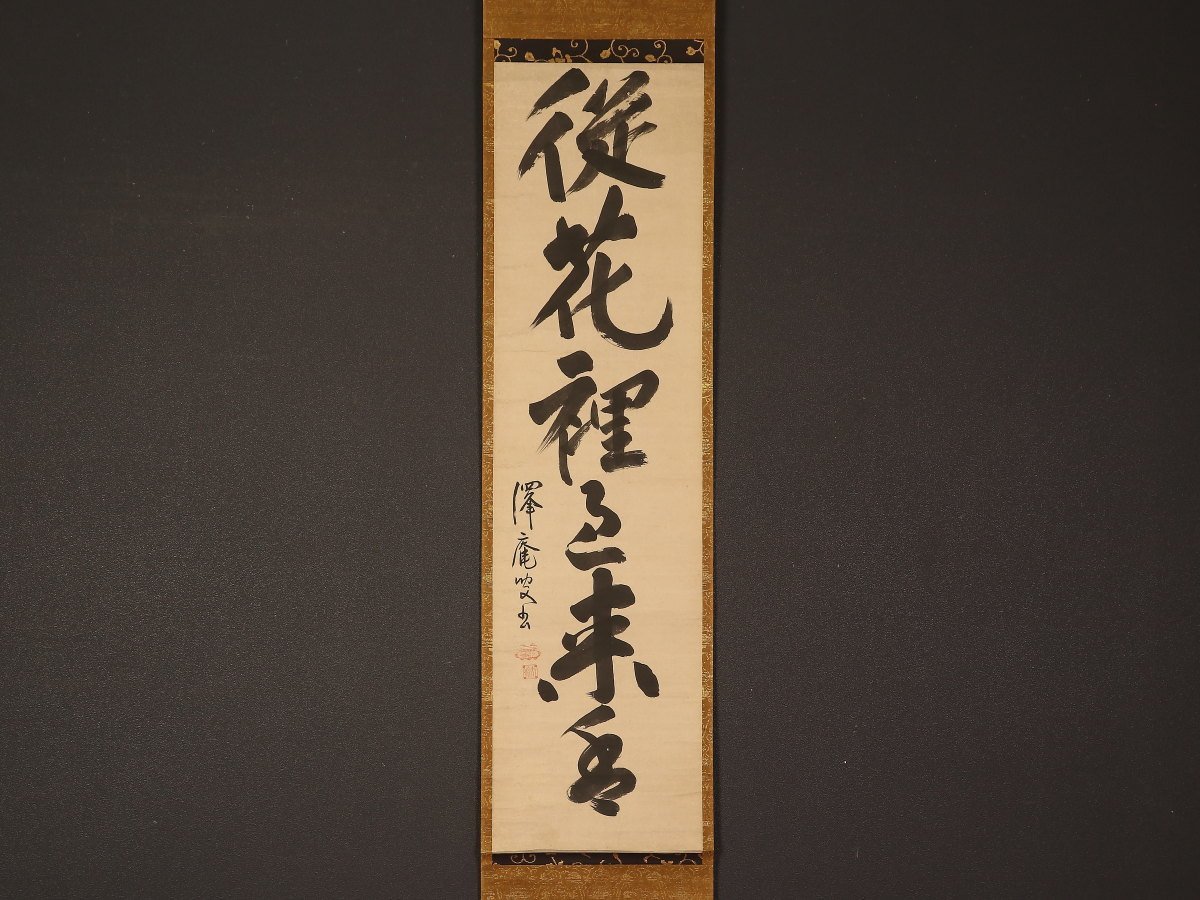 從花裡過来香
澤庵叟書